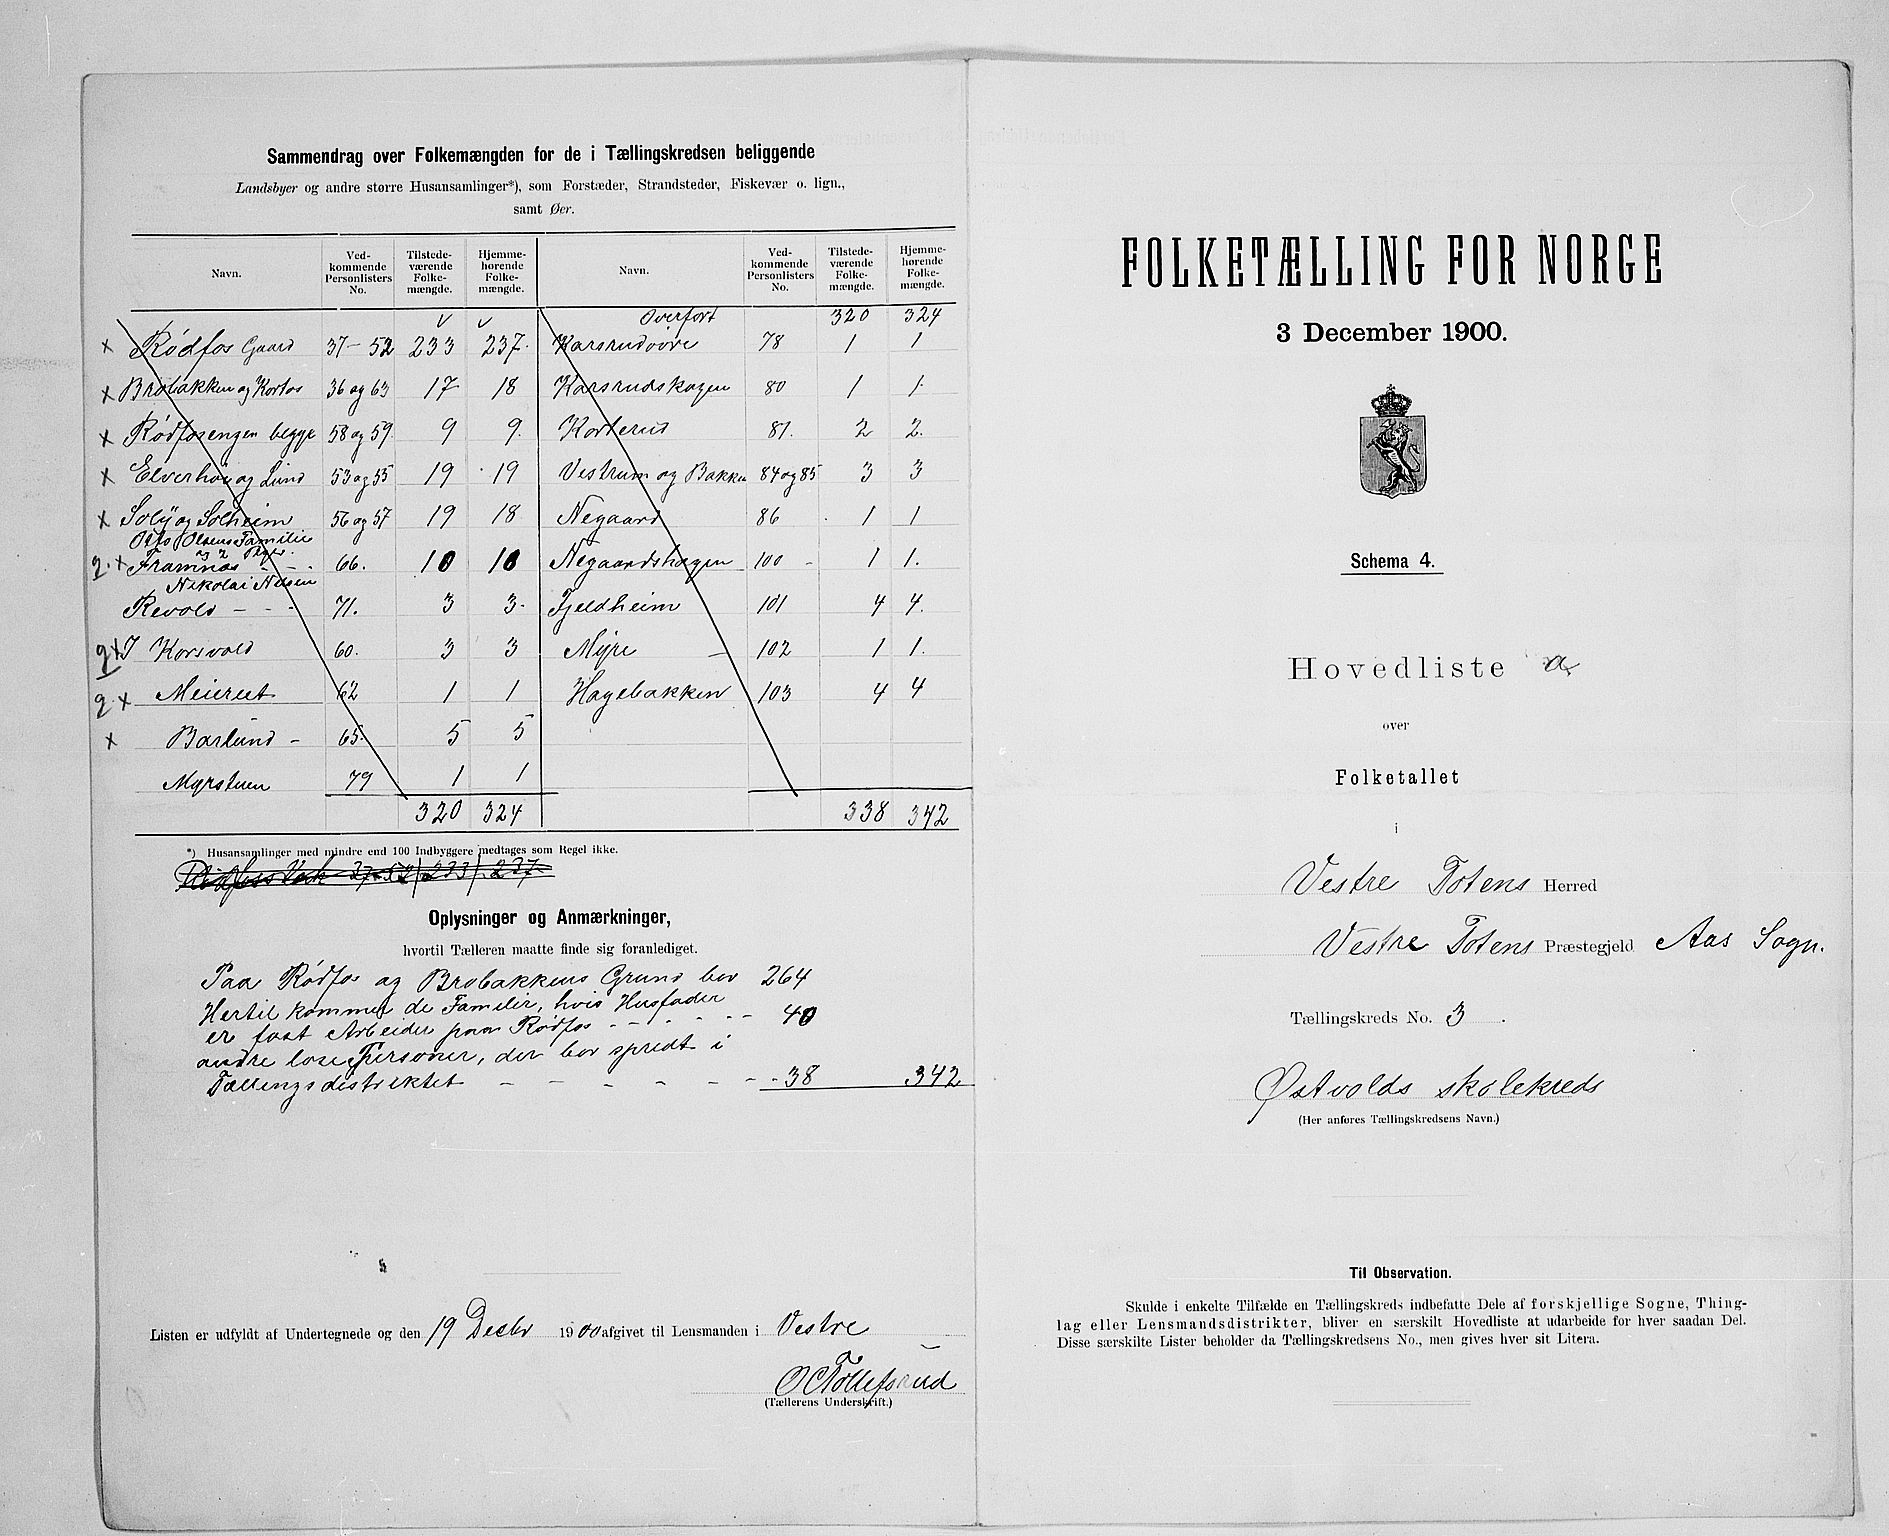 Sammendrag over Folkemængden for de i Tællingskredsen beliggende
Landsbyer og andre større Husansamlinger*), som Forstæder, Strandsteder, Fiskevær o. lign.,
samt Øer.
Navn. Ved-kommende Personlisters No. Tilstede-værende Folke-mængde. Hjemme-hørende Folke-mængde. Navn. Ved-kommende Personlisters No. Tilstede-værende Folke-mængde. Hjemme-hørende Folke-mængde.
v v Overført 320 324
x Rødfos Gaard 37-52 233 237. Karsrudøvre 78 1 1
x Brobakken og Kortos 36 og 63 17 18 Karsrudskogen 80 1 1
x Rødfosengen begge 58 og 59. 9 9. Korterud 81. 2 2.
x Elverhøi og Lund 53 og 55 19 19 Vestrum og Bakken 84 og 85 3 3
x Solÿ og Solheim 56 og 57 19 18 Negaard 86 1 1
Otto Olsens Familie
og 2
x Framnæs - - 66. 10 10 Negaardshagen 100 - 1 1.
Nikolai Nilsen
Revold - - - 71. 3 3. Fjeldheim 101 4 4.
Korsvold 60. 3 3 Myre - 102 1 1.
x Meieriet 62 1 1 Hagebakken 103 4 4
x Barlund - 65. 5 5
Myrstuen 79 1 1
320 324 338 342
*) Husansamlinger med mindre end 100 Indbyggere medtages som Regel ikke.
37-52 233 237
Oplysninger og Anmærkninger,
hvortil Tælleren maatte finde sig foranlediget.
Paa Rødfos og Brobakkens Grund bor 264
Hertil kommer de Familier, hvis Husfader
er fast Arbeider paa Rødfos - - - - - 40
andre løse Personer, der bor spredt i
Tællingsdistriktet - - - - - - 38 342
Listen er udfyldt af Undertegnede og den 19 Decbr 1900 afgivet til Lensmanden i Vestre
Tollefsrud
(Tællerens Underskrift.)
FOLKETÆLLING FOR NORGE
3 December 1900.
Schema 4.
Hovedliste a
over
Folketallet
i
Vestre Totens Herred
Vestre Totens Præstegjeld Aas Sogn.
Tællingskreds No. 3.
Østvolds skolekreds
(Her anføres Tællingskredsens Navn.)
Til Observation.
Skulde i enkelte Tilfælde en Tællingskreds indbefatte Dele af forskjellige Sogne, Thing-
lag eller Lensmandsdistrikter, bliver en særskilt Hovedliste at udarbeide for hver saadan Del.
Disse særskilte Lister beholder da Tællingskredsens No., men gives hver sit Litera.